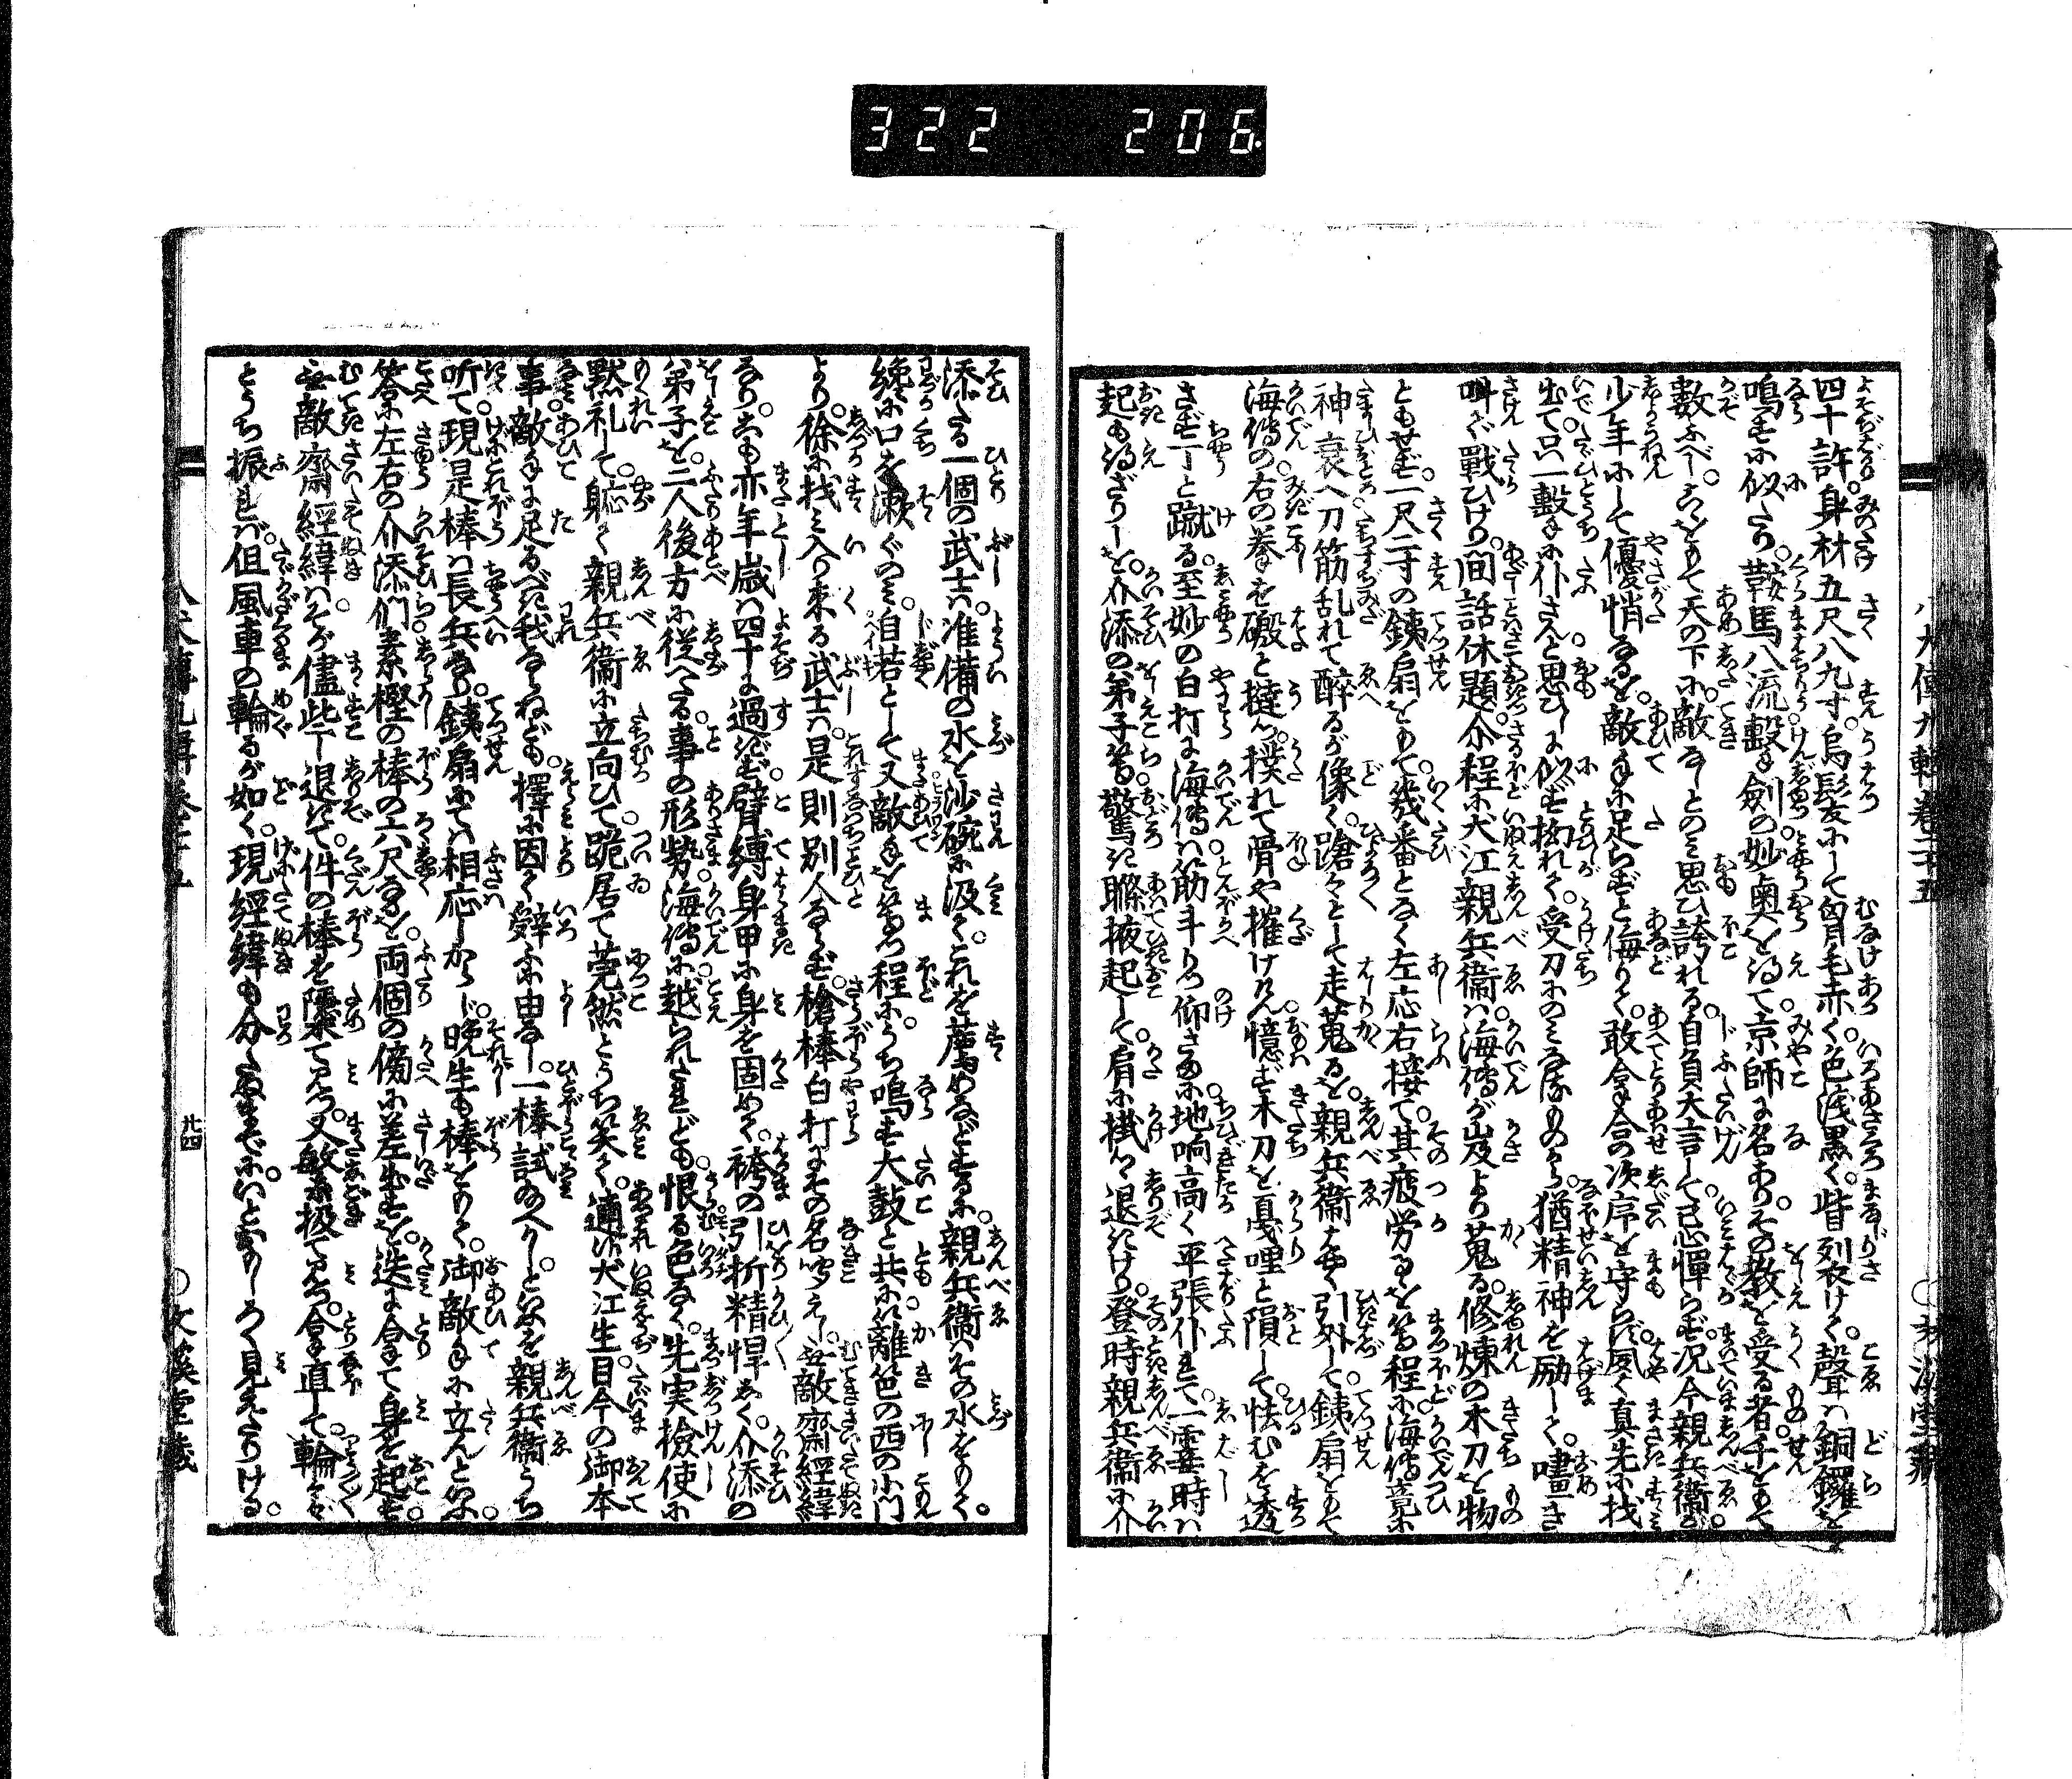 322 206
四十許。身材五尺八九寸。烏髪にして胸毛赤く。色浅黒く。眥列けて。聲は銅鑼を
鳴すに似たり。鞍馬八流撃剣の妙奥を得て京師に名あり。その教を受る者。千をもて
数ふべし。こゝをもて天の下に。敵なしとのみ思ひ誇れる。自負大言して忌憚らず。况今親兵衛が
少年にして優悄なるを。敵手に足らずと侮りて。敢拿合の次序を守らず。夙く真先に找
出て。只一撃に仆さんと思ひしに似ず拗れて。受刀にのみなるものから。猶精神を励して。嚄き
叫びて戦ひけり。間話休題。尒程に犬江親兵衛は。海傳が岌より蒐る。修煉の木刀を物
ともせず。一尺二寸の銕扇をもて幾番となく左応右接て。其疲労るゝを等程に。海傳竟に
神衰へ刀筋乱れて酔るが像く。蹌々として走蒐るを。親兵衛丁と引外して銕扇をもて
海傳の右の拳を礑と撻つ。撲れて骨や摧けけん。憶ず木刀を戛哩と隕して怯むを透
さず丁と蹴る。至妙の白打に海傳は。筋斗りつ仰さまに。地响高く平張仆れて。一霎時は
起も得ざりしを。介添の弟子等驚き。掖起して。肩に掛つゝ退きけり。登時親兵衛に介
添たる一個の武士は。准備の水を沙碗に汲て。これを薦めなどするに。親兵衛はその水をもて。
纔に口を漱ぐのみ。自若として又敵手を等つ程に。うち鳴す大鼓と共に。籬笆の西の小門
より。徐に找み入り来る武士は。是則別人ならず。槍棒白打にその名聞えし。無敵齋経緯
なり。这も亦年歳は四十に過ず。臂縛身甲に身を固めて。袴の引折精悍しく。介添の
弟子を。二人後方に従へたる。事の形勢海傳に。越られたれども。恨る色なく。先実檢使に
黙礼して。軈て親兵衛に立向ひて。跪居て莞然とうち笑て。遖は犬江生。目今の御本
事。敵手に足るべき我ならねども。擇に因て辞ふに由なし。一棒試給へかし。といふを親兵衛うち
听て。現是棒は長兵なり。銕扇にては相応しからじ。晩生も棒をもて。御敵手に立んといふ。
答に左右の介添們。素樫の棒の六尺なるを。両個の傍に差出すを。迭に拿て身を起す。
無敵齋経緯は。そが儘些し退きて。件の棒を
とうち振れば。但風車の輪るが如く。現経緯も分たぬまでに。いとめづらしく見えたりける。
八犬傳九輯巻二十五
廿四
文溪堂藏